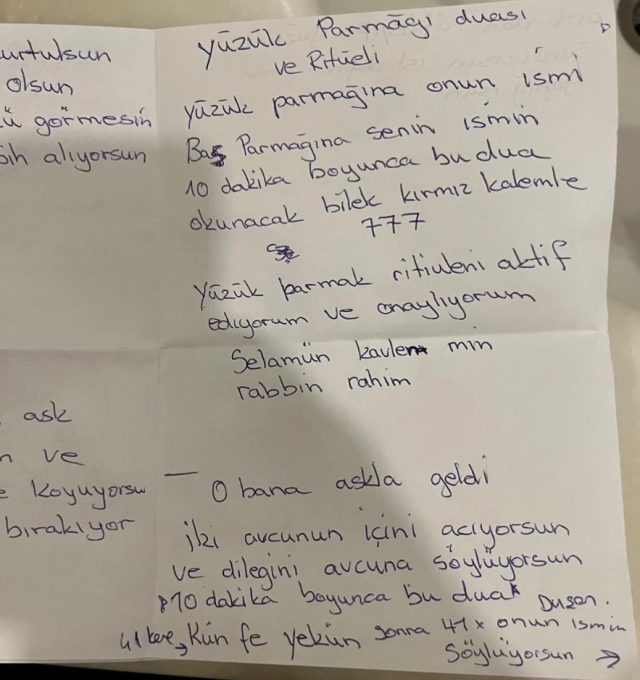 urtulsun
olsun
ü görmesin
bih alıyorsun
ask
n ve
e koyuyorsu
bırakıyor
yüzük Parmağı duası
ve Ritüeli
yüzük parmağına onun ismi
Baş Parmağına senin ismin
10 dakika boyunca bu dua
okunacak bilek kırmız kalemle
777
Yüzük parmak ritiuleni aktif
ediyorum ve onaylıyorum
Selamün kavlen min
rabbin rahim
— O bana askla geldi
iki avcunun içini acıyorsun
ve dilegini avcuna söylüyorsun
10 dakika boyunca bu dua
41 kere, Kün fe yekün sonra 41x onun ismin
söylüyorsun →